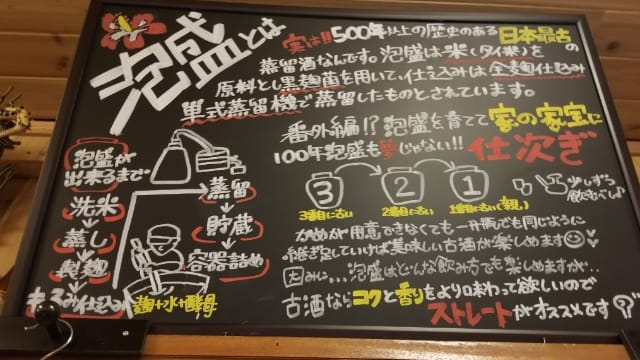 泡盛とは
実は!!500年以上の歴史のある日本最古の
蒸留酒なんです。泡盛は米(タイ米)を
原料とし黒麹菌を用いて、仕込みは全麹仕込み
単式蒸留機で蒸留したものとされています。
番外編!?泡盛を育てて家の家宝に
100年泡盛も夢じゃない!!仕次ぎ
泡盛が
出来るまで
洗米
蒸し
製麹
もろみ仕込み
麹+水+酵母
蒸留
貯蔵
容器詰め
3 2 1
3番目に古い 2番目に古い 1番目に古い(親)
少しずつ
飲むぐし♪
かめが用意できなくても一升瓶でも同じように
継ぎ足していけば美味しい古酒が楽しめます
因みに...泡盛はどんな飲み方でも楽しめますが..
古酒ならコクと香りをより味わって欲しいので
ストレートがオススメです